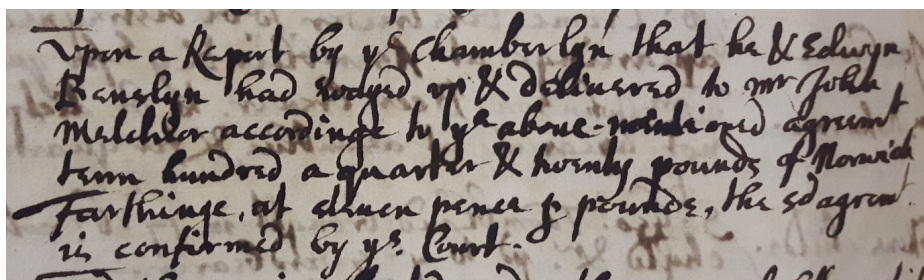 Upon a Report by ye Chamberlyn that he & Edwyn
Benslyn had wayed up & delivered to mr John
Melchior accordinge to ye above-mentioned agreemt
tenn hundred a quarter & twenty pounds of Norwich
Farthings, at eleven pence p pounde, the sd agreemt
is confirmed by ye Court.